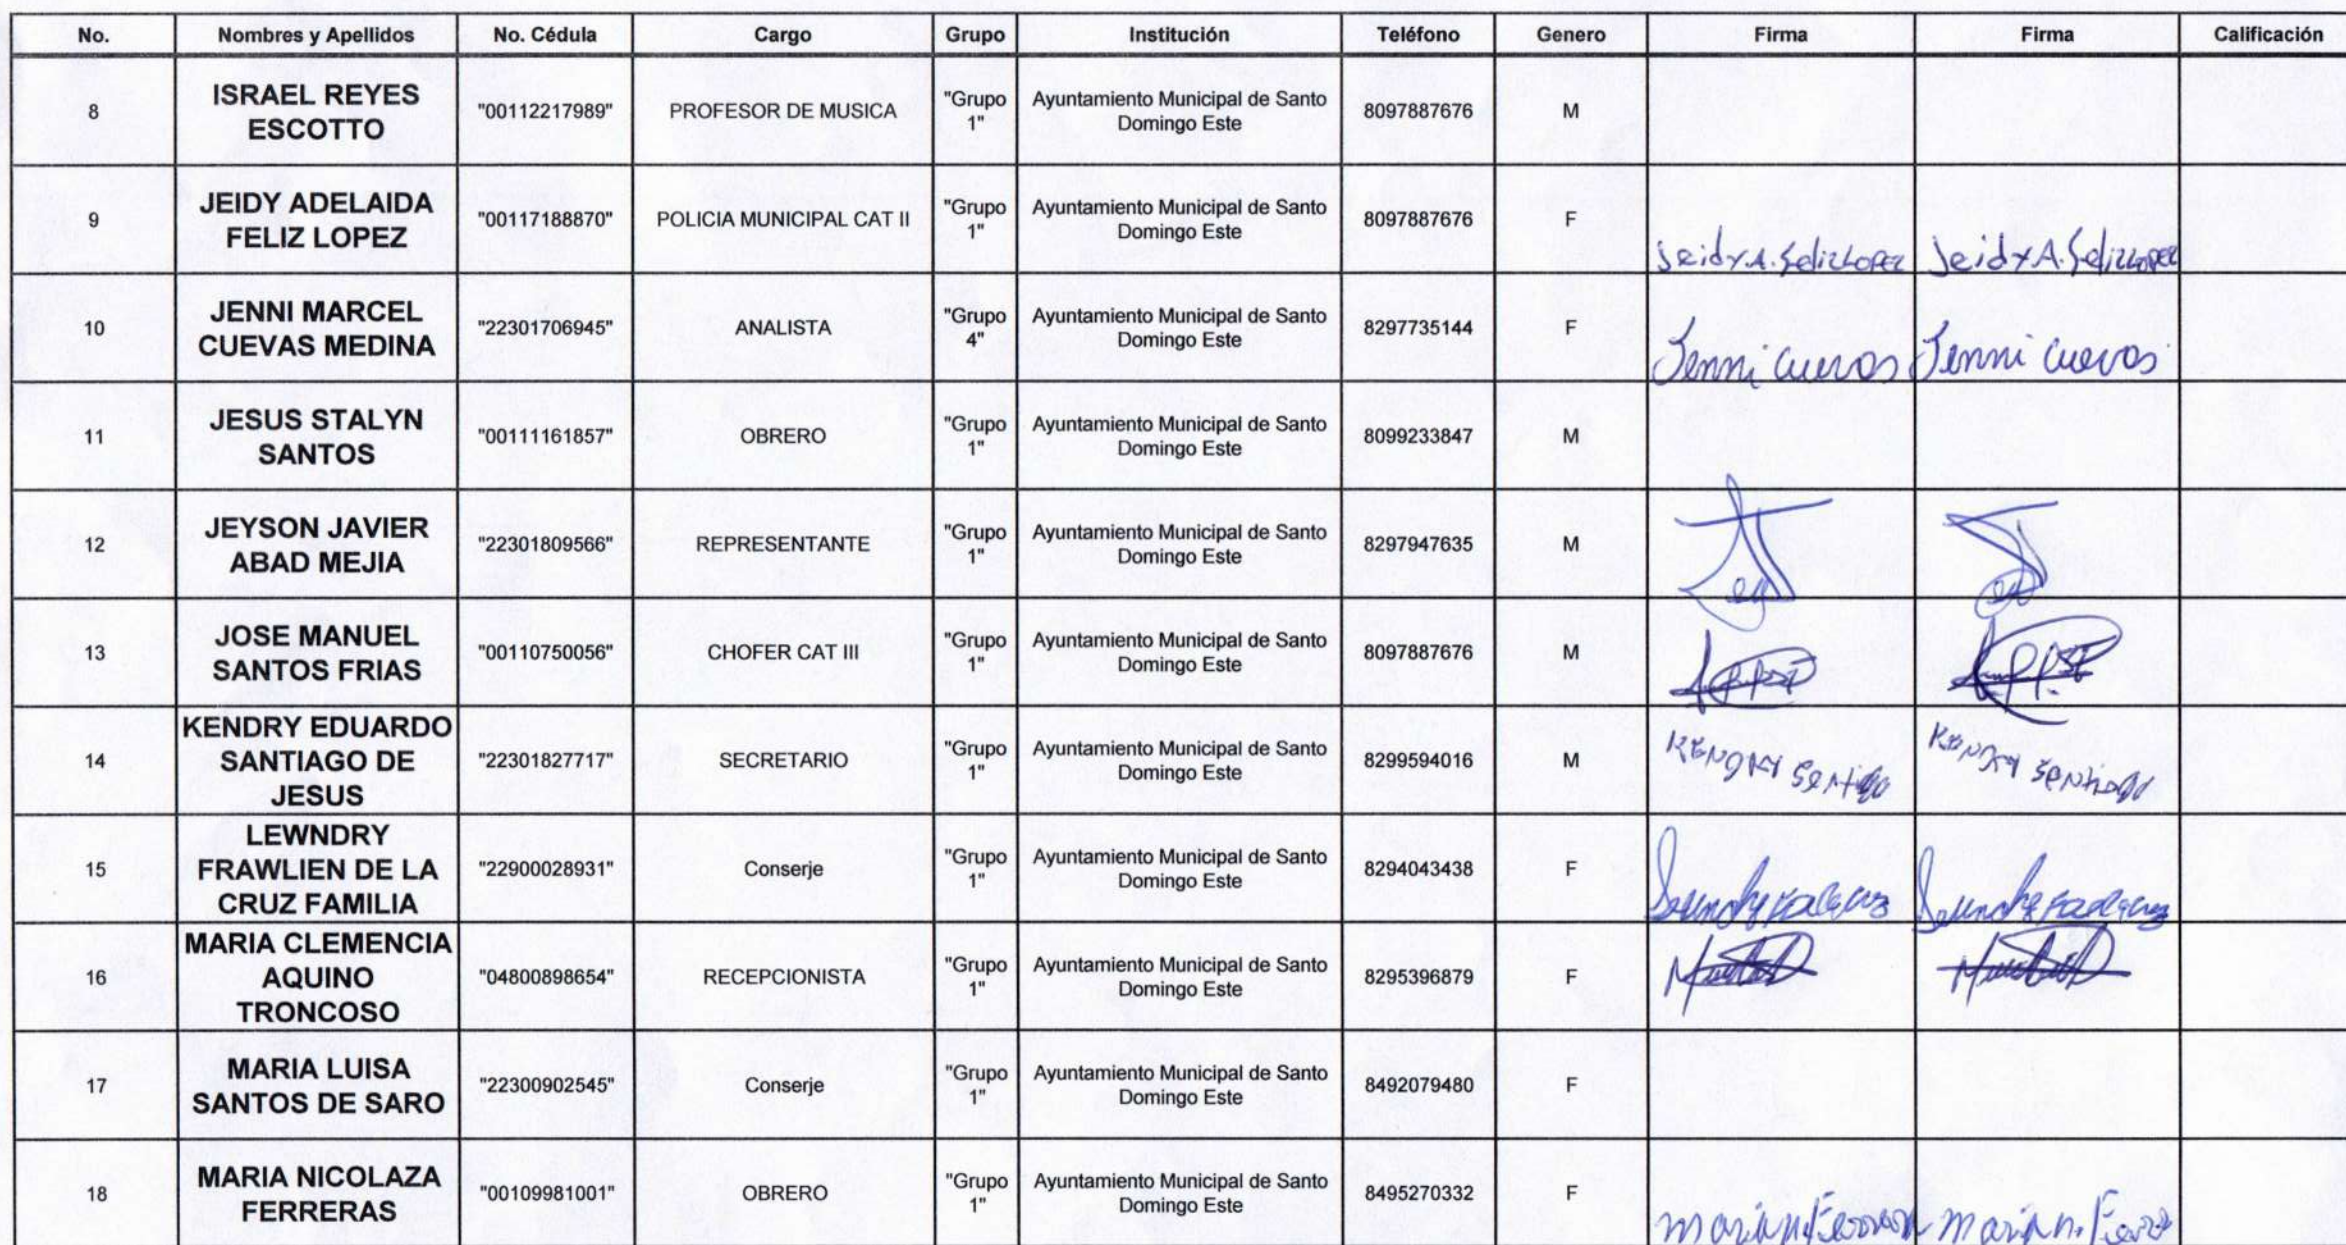 No. Nombres y Apellidos No. Cédula Cargo Grupo Institución Teléfono Genero Firma Firma Calificación
8 ISRAEL REYES ESCOTTO "00112217989" PROFESOR DE MUSICA "Grupo 1" Ayuntamiento Municipal de Santo Domingo Este 8097887676 M
9 JEIDY ADELAIDA FELIZ LOPEZ "00117188870" POLICIA MUNICIPAL CAT II "Grupo 1" Ayuntamiento Municipal de Santo Domingo Este 8097887676 F Jeidy A. Feliz Lopez Jeidy A. Feliz Lopez
10 JENNI MARCEL CUEVAS MEDINA "22301706945" ANALISTA "Grupo 4" Ayuntamiento Municipal de Santo Domingo Este 8297735144 F Jenni Cuevas Jenni Cuevas
11 JESUS STALYN SANTOS "00111161857" OBRERO "Grupo 1" Ayuntamiento Municipal de Santo Domingo Este 8099233847 M
12 JEYSON JAVIER ABAD MEJIA "22301809566" REPRESENTANTE "Grupo 1" Ayuntamiento Municipal de Santo Domingo Este 8297947635 M
13 JOSE MANUEL SANTOS FRIAS "00110750056" CHOFER CAT III "Grupo 1" Ayuntamiento Municipal de Santo Domingo Este 8097887676 M
14 KENDRY EDUARDO SANTIAGO DE JESUS "22301827717" SECRETARIO "Grupo 1" Ayuntamiento Municipal de Santo Domingo Este 8299594016 M Kendry Santiago Kendry Santiago
15 LEWNDRY FRAWLIEN DE LA CRUZ FAMILIA "22900028931" Conserje "Grupo 1" Ayuntamiento Municipal de Santo Domingo Este 8294043438 F
16 MARIA CLEMENCIA AQUINO TRONCOSO "04800898654" RECEPCIONISTA "Grupo 1" Ayuntamiento Municipal de Santo Domingo Este 8295396879 F
17 MARIA LUISA SANTOS DE SARO "22300902545" Conserje "Grupo 1" Ayuntamiento Municipal de Santo Domingo Este 8492079480 F
18 MARIA NICOLAZA FERRERAS "00109981001" OBRERO "Grupo 1" Ayuntamiento Municipal de Santo Domingo Este 8495270332 F maria n. maria n.